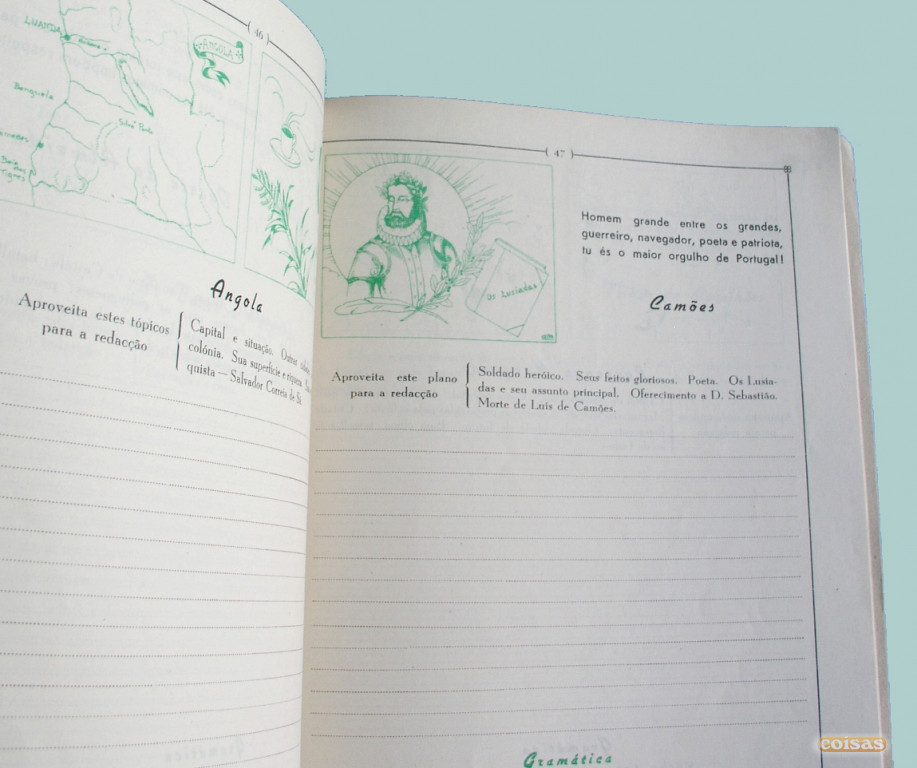 46
LUANDA
ANGOLA
Benguela
Silva Porto
Tigres
Angola
Aproveita estes tópicos
para a redacção
Capital e situação. Outras
colónia. Sua superfície e riqueza.
quista — Salvador Correia de Sá.
47
Os Lusíadas
Homem grande entre os grandes,
guerreiro, navegador, poeta e patriota,
tu és o maior orgulho de Portugal!
Camões
Aproveita este plano
para a redacção
Soldado heróico. Seus feitos gloriosos. Poeta. Os Lusía-
das e seu assunto principal. Oferecimento a D. Sebastião.
Morte de Luís de Camões.
Gramática
coisas